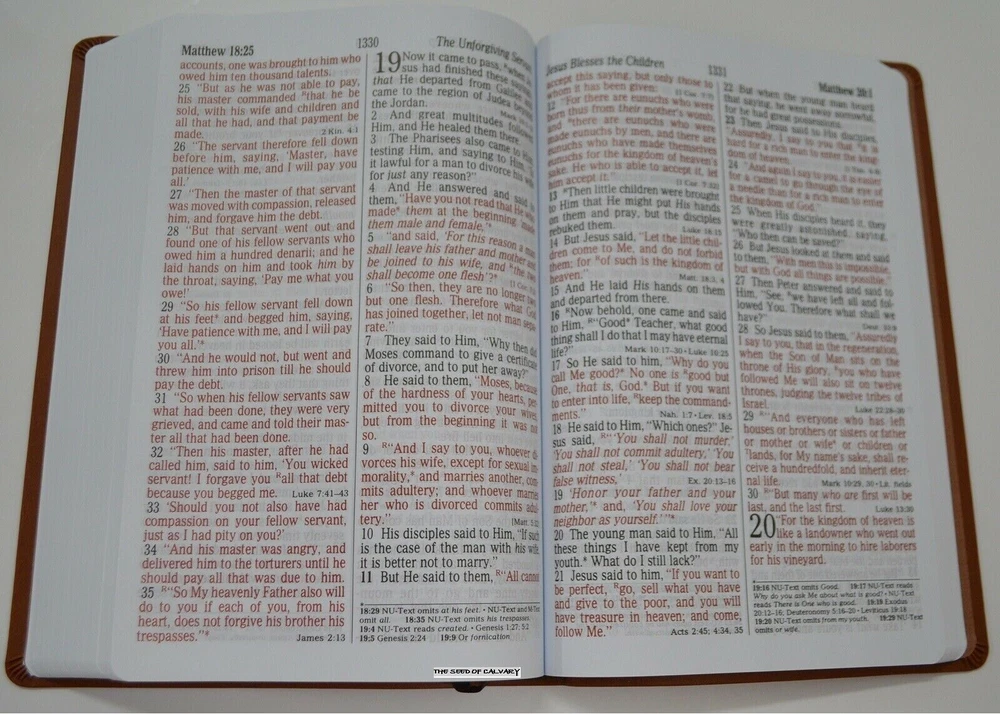 Matthew 18:25
1330
The Unforgiving
accounts, one was brought to him who
owed him ten thousand talents.
25 "But as he was not able to pay,
his master commanded that he be
sold, with his wife and children and
all that he had, and that payment be
made. 2 Kin. 4:1
26 "The servant therefore fell down
before him, saying, 'Master, have
patience with me, and I will pay you
all.'
27 "Then the master of that servant
was moved with compassion, released
him, and forgave him the debt.
28 "But that servant went out and
found one of his fellow servants who
owed him a hundred denarii; and he
laid hands on him and took him by
the throat, saying, 'Pay me what you
owe!'
29 "So his fellow servant fell down
at his feet* and begged him, saying,
'Have patience with me, and I will pay
you all.'*
30 "And he would not, but went and
threw him into prison till he should
pay the debt.
31 "So when his fellow servants saw
what had been done, they were very
grieved, and came and told their mas-
ter all that had been done.
32 "Then his master, after he had
called him, said to him, 'You wicked
servant! I forgave you ᴿall that debt
because you begged me. Luke 7:41–43
33 'Should you not also have had
compassion on your fellow servant,
just as I had pity on you?'
34 "And his master was angry, and
delivered him to the torturers until he
should pay all that was due to him.
35 ᴿ"So My heavenly Father also will
do to you if each of you, from his
heart, does not forgive his brother his
trespasses."* James 2:13
19 Now it came to pass, when
sus had finished these
that He departed from
came to the region of Judea
the Jordan.
2 And great multitudes
Him, and He healed them there.
3 The Pharisees also came
testing Him, and saying to Him,
it lawful for a man to divorce his
for just any reason?"
4 And He answered and said
them, "Have you not read that He
made* them at the beginning
them male and female,'*
5 "and said, 'For this reason a
shall leave his father and mother
be joined to his wife, and the two
shall become one flesh'?*
6 "So then, they are no longer two
but one flesh. Therefore what God
has joined together, let not man sepa-
rate."
7 They said to Him, "Why then did
Moses command to give a certificate
of divorce, and to put her away?"
8 He said to them, "Moses, because
of the hardness of your hearts, per-
mitted you to divorce your wives,
but from the beginning it was not
so.
9 ᴿ"And I say to you, whoever di-
vorces his wife, except for sexual im-
morality,* and marries another, com-
mits adultery; and whoever marries
her who is divorced commits adul-
tery." [Matt. 5:32
10 His disciples said to Him, "If such
is the case of the man with his wife,
it is better not to marry."
11 But He said to them, ᴿ"All cannot
18:29 NU-Text omits at his feet. • NU-Text and
omit all. 18:35 NU-Text omits his trespasses.
19:4 NU-Text reads created. • Genesis 1:27; 5:2
19:5 Genesis 2:24 19:9 Or fornication.
Jesus Blesses the Children
1331
Matthew 20:1
accept this saying, but only those to
whom it has been given:
12 "For there are eunuchs who were
born thus from their mother's womb,
and there are eunuchs who were
made eunuchs by men, and there are
eunuchs who have made themselves
eunuchs for the kingdom of heaven's
sake. He who is able to accept it, let
him accept it." [1 Cor. 7:32
13 ᴿThen little children were brought
to Him that He might put His hands
on them and pray, but the disciples
rebuked them. Luke 18:15
14 But Jesus said, "Let the little chil-
dren come to Me, and do not forbid
them; for ᴿof such is the kingdom of
heaven." Matt. 18:3, 4
15 And He laid His hands on them
and departed from there.
16 ᴿNow behold, one came and said
to Him, ᴿ"Good* Teacher, what good
thing shall I do that I may have eternal
life?" Mark 10:17–30 • Luke 10:25
17 So He said to him, "Why do you
call Me good?* No one is ᴿgood but
One, that is, God.* But if you want
to enter into life, ᴿkeep the command-
ments." Nah. 1:7 • Lev. 18:5
18 He said to Him, "Which ones?" Je-
sus said, ᴿ"'You shall not murder,'
'You shall not commit adultery,' 'You
shall not steal,' 'You shall not bear
false witness,' Ex. 20:13–16
19 'Honor your father and your
mother,'* and, 'You shall love your
neighbor as yourself.'"*
20 The young man said to Him, "All
these things I have kept from my
youth.* What do I still lack?"
21 Jesus said to him, "If you want to
be perfect, ᴿgo, sell what you have
and give to the poor, and you will
have treasure in heaven; and come,
follow Me." Acts 2:45; 4:34, 35
22 But when the young man heard
that saying, he went away sorrowful,
for he had great possessions.
23 Then Jesus said to His disciples,
"Assuredly, I say to you that it is
hard for a rich man to enter the king-
dom of heaven.
24 "And again I say to you, it is easier
for a camel to go through the eye of
a needle than for a rich man to enter
the kingdom of God."
25 When His disciples heard it, they
were greatly astonished, saying,
"Who then can be saved?"
26 But Jesus looked at them and said
to them, "With men this is impossible,
but with God all things are possible."
27 Then Peter answered and said to
Him, "See, ᴿwe have left all and fol-
lowed You. Therefore what shall we
have?"
28 So Jesus said to them, "Assuredly
I say to you, that in the regeneration,
when the Son of Man sits on the
throne of His glory, ᴿyou who have
followed Me will also sit on twelve
thrones, judging the twelve tribes of
Israel. Luke 22:28–30
29 ᴿ"And everyone who has left
houses or brothers or sisters or father
or mother or wife* or children or
ᴿlands, for My name's sake, shall re-
ceive a hundredfold, and inherit eter-
nal life. Mark 10:29, 30 • Lit. fields
30 ᴿ"But many who are first will be
last, and the last first. Luke 13:30
20 "For the kingdom of heaven is
like a landowner who went out
early in the morning to hire laborers
for his vineyard.
19:16 NU-Text omits Good. 19:17 NU-Text reads
Why do you ask Me about what is good? • NU-Text
reads There is One who is good. 19:18 Exodus
20:12–16; Deuteronomy 5:16–20 • Leviticus 19:18
19:20 NU-Text omits from my youth. 19:29 NU-Text
omits or wife.
THE SEED OF CALVARY